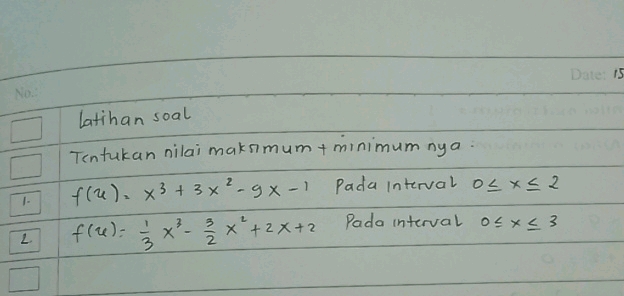 No.:
Date: 15
Latihan soal
Tentukan nilai maksimum + minimum nya :
1. f(x) = x³ + 3x² - 9x - 1 Pada interval 0 ≤ x ≤ 2
2. f(x) = 1/3 x³ - 3/2 x² + 2x + 2 Pada interval 0 ≤ x ≤ 3